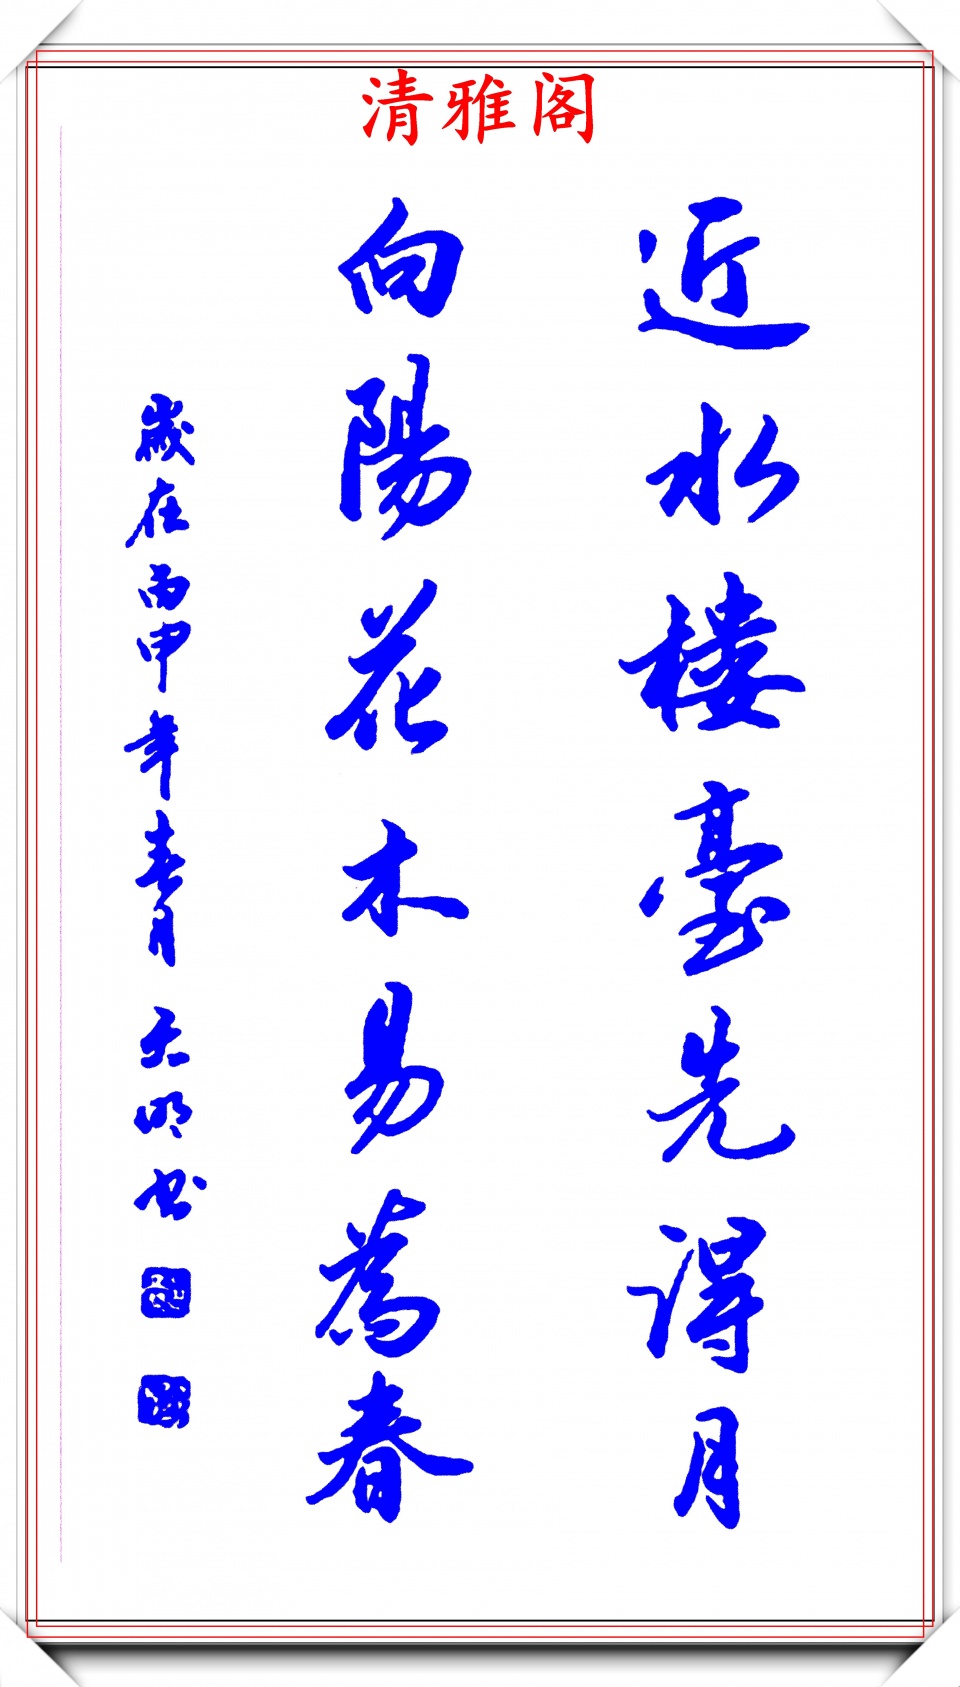 清雅阁
近水楼臺先得月
向陽花木易為春
歲在丙申年春月 天明书